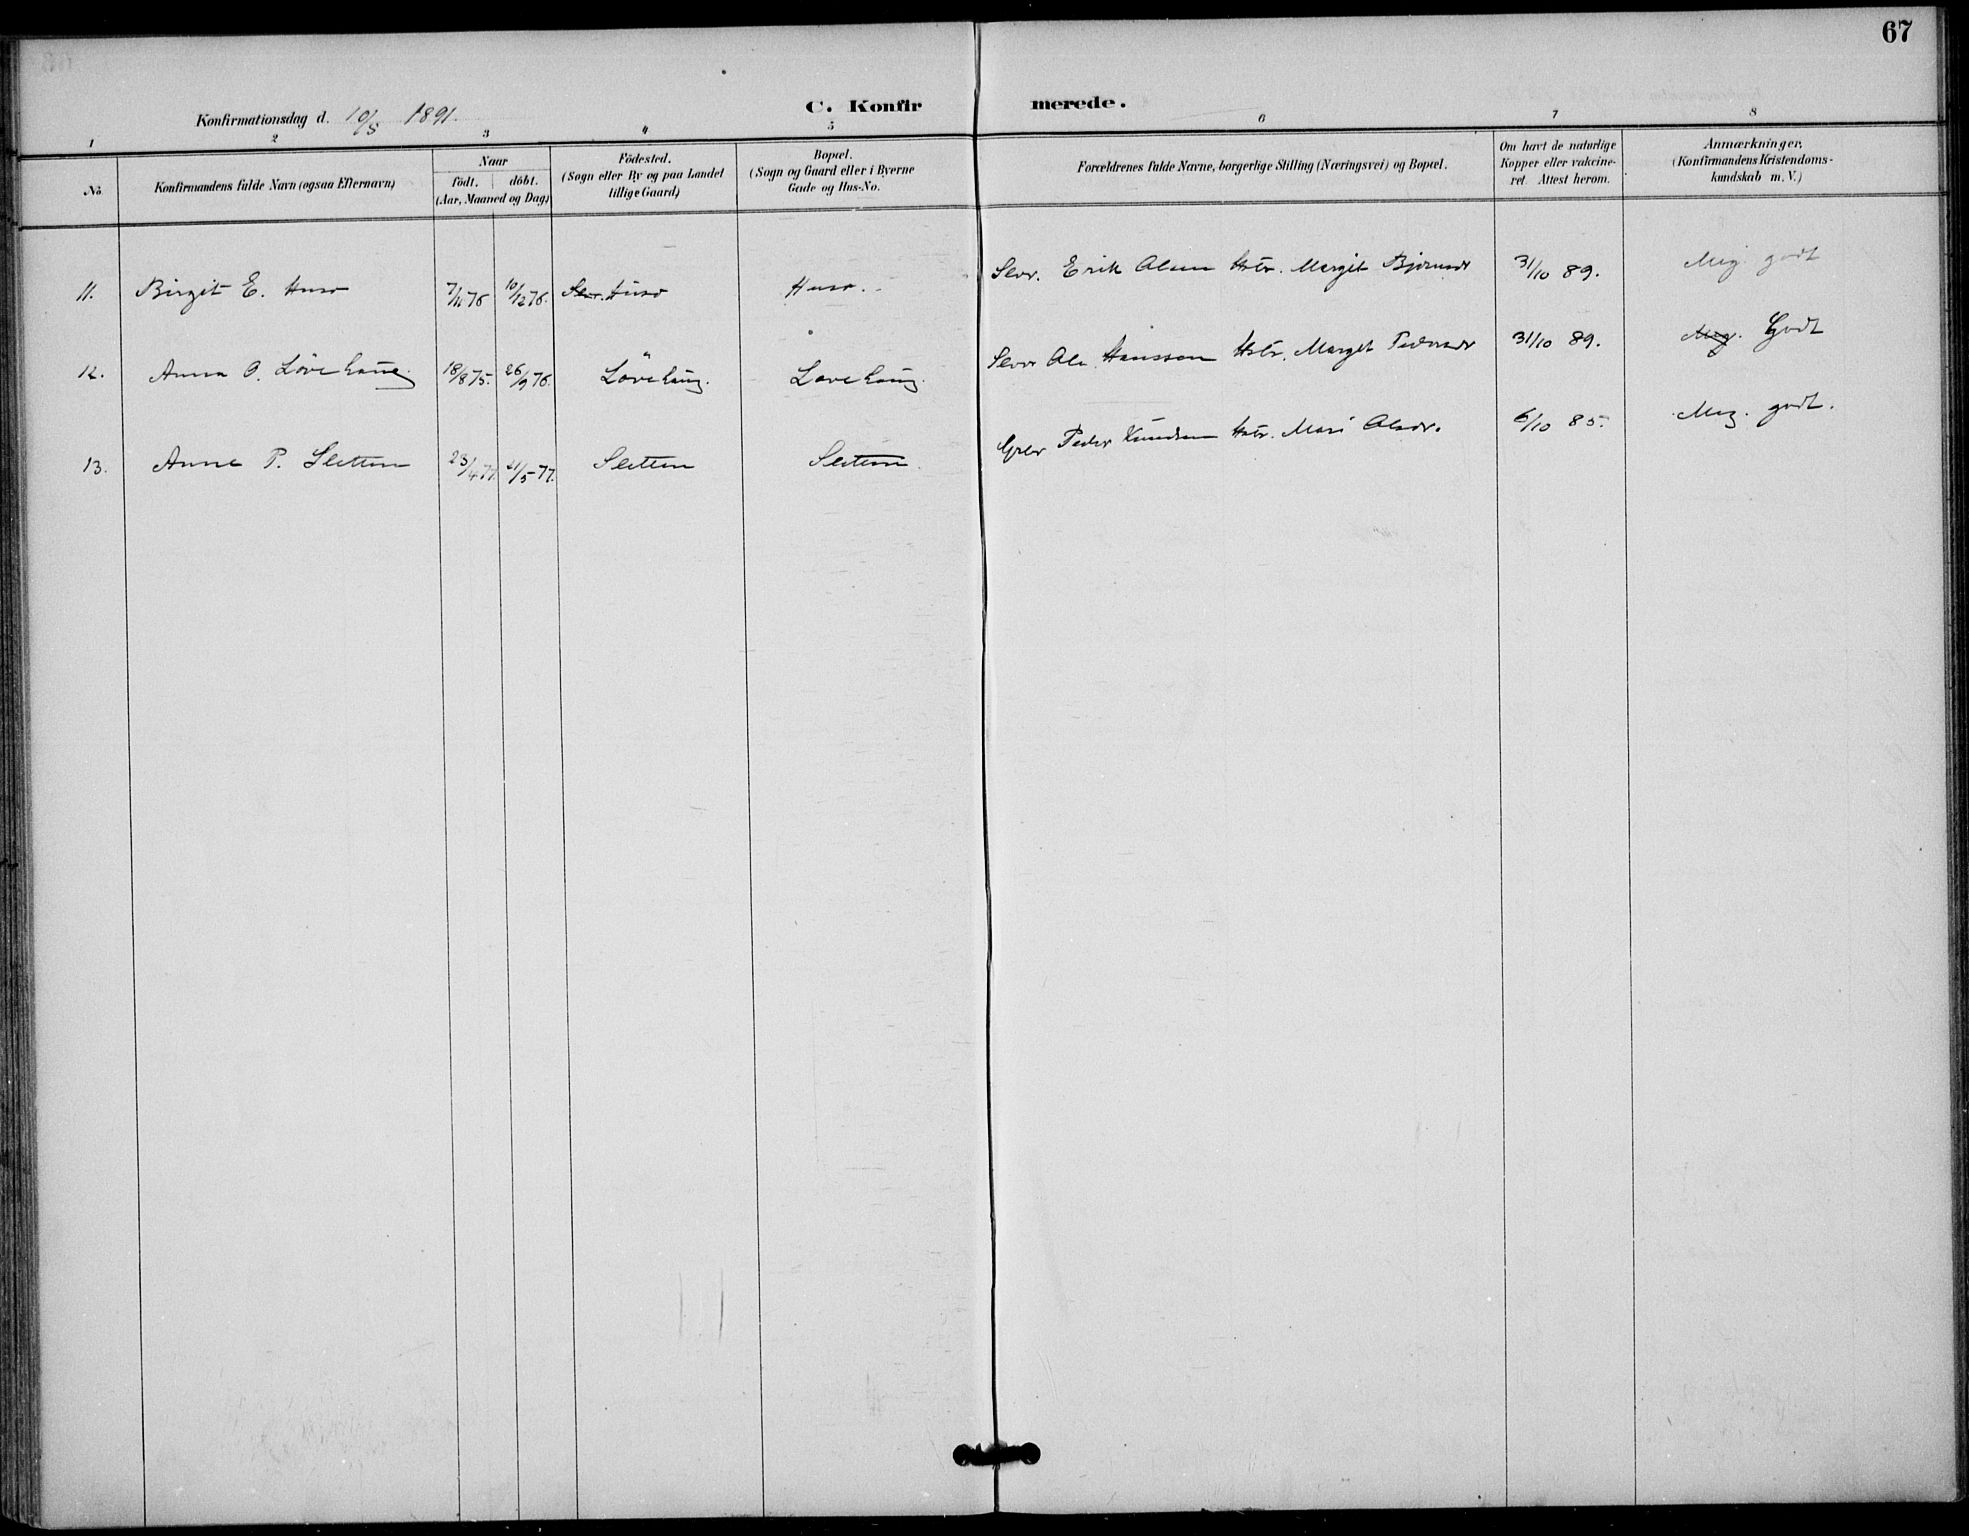 67
Konfirmationsdag d. 10/5 1891.
C. Konfirmerede.
1 2 3 4 5 6 7 8
No
Konfirmandens fulde Navn (ogsaa Efternavn)
Naar
födt. döbt.
(Aar, Maaned og Dag)
Födested.
(Sogn eller By og paa Landet
tillige Gaard)
Bopæl.
(Sogn og Gaard eller i Byerne
Gade og Hus-No.
Forældrenes fulde Navne, borgerlige Stilling (Næringsvei) og Bopæl.
Om havt de naturlige
Kopper eller vakcine-
ret. Attest herom.
Anmærkninger.
(Konfirmandens Kristendoms-
kundskab m. V.)
11. Birgit E. Huso 7/11 76 10/12 76. Huso Huso. Erik Olsen Hstr. Margit Bjørnsdr 31/10 89. Meg. godt
12. Anna O. Løvehaug 18/8 75. 26/9 76. Løvehaug. Løvehaug. Ole Hansson Hstr. Margit Pedersdr 31/10 89. Meg. Godt
13. Anne P. Sletten 23/4 77. 21/5 77. Sletten Sletten. Peder Knudsen Hstr. Mari Olsdr. 6/10 85. Meg. godt.